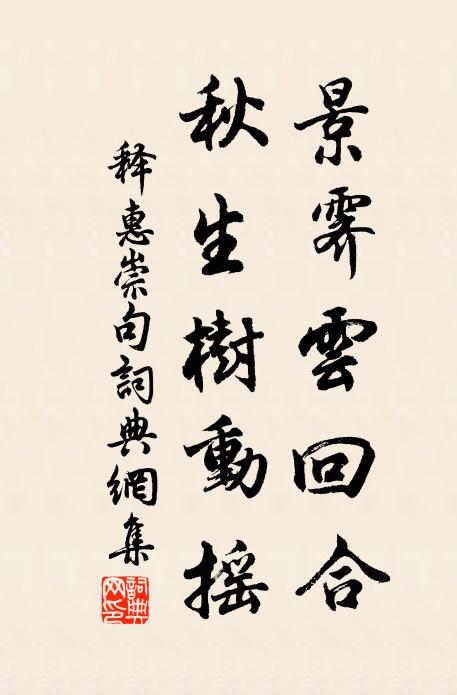 景霽雲回合
秋生樹動摇
释惠崇句詞典網集
詞典网印